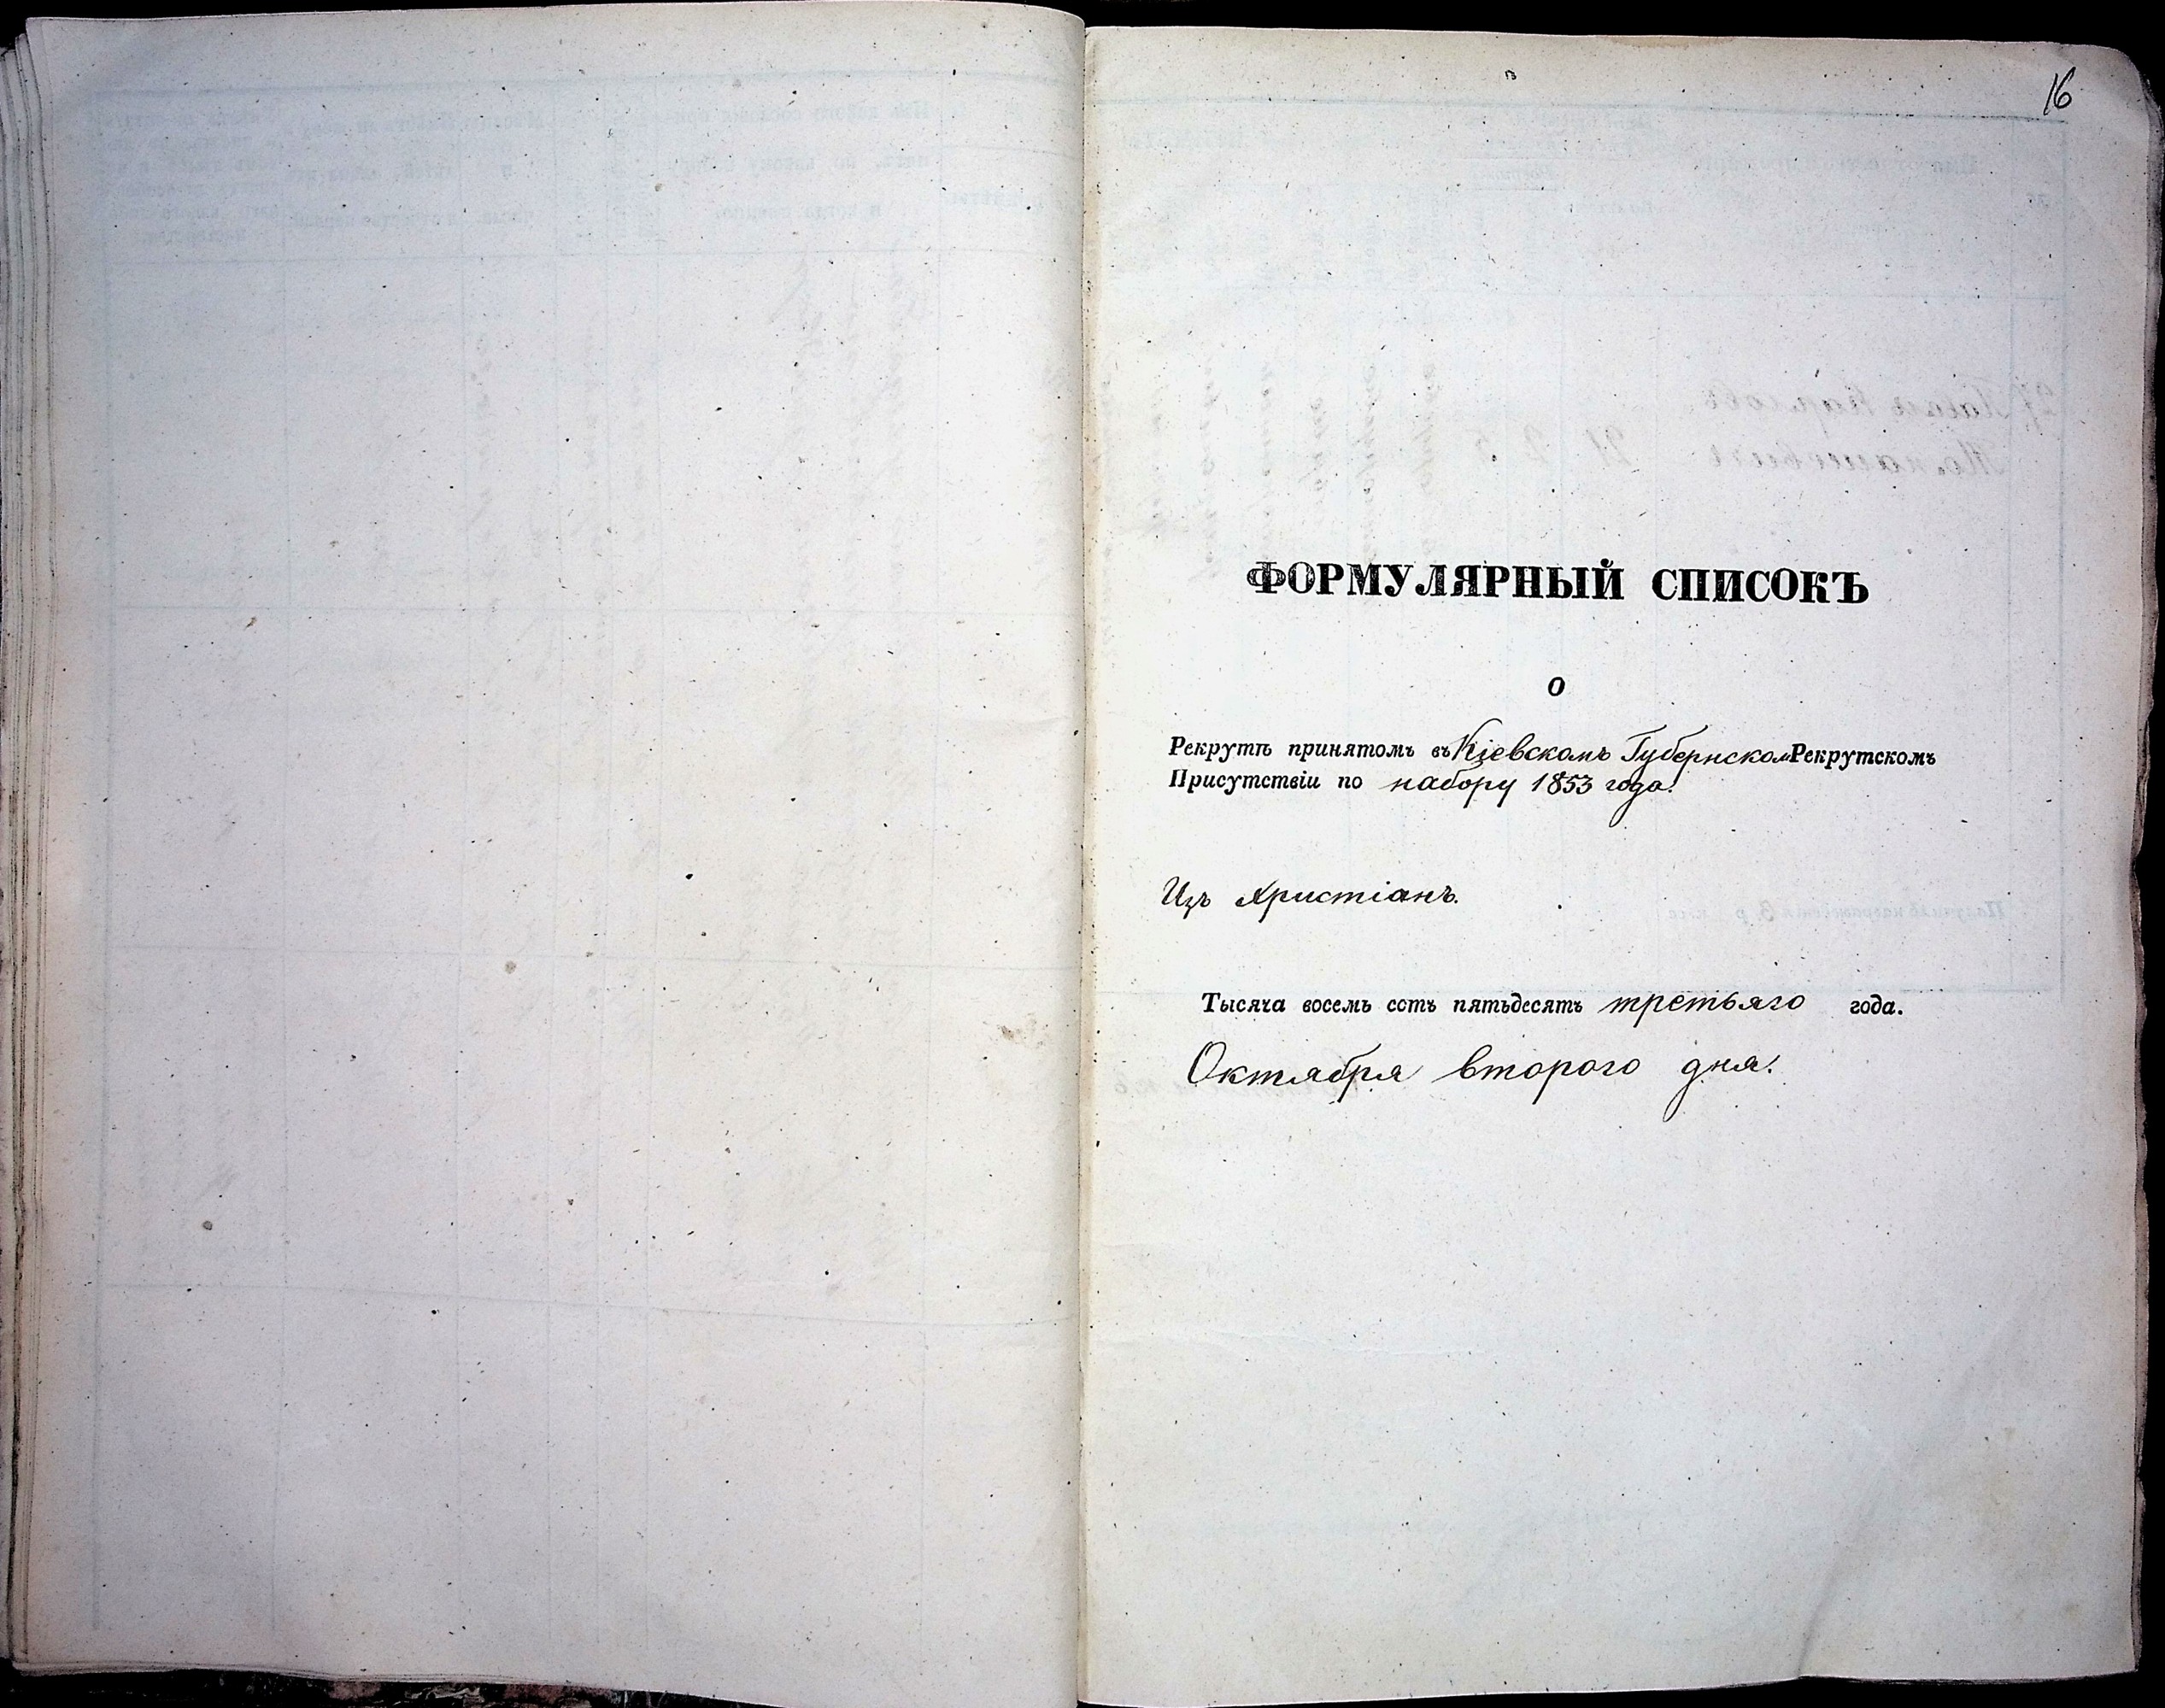 16
ФОРМУЛЯРНЫЙ СПИСОКЪ
О
Рекрутѣ принятомъ въ Кіевскомъ Губернском Рекрутскомъ
Присутствіи по набору 1853 года.
Изъ Христіанъ.
Тысяча восемь сотъ пятьдесятъ третьяго года.
Октября второго дня.